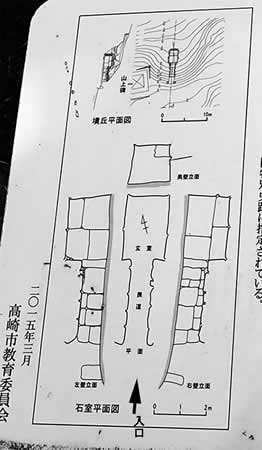 山上碑
墳丘平面図
0 10m
奥壁立面
玄室
羨道
平面
左壁立面
右壁立面
石室平面図
0 1 2m
入口
特別史跡に指定されている。
二〇一五年三月
高崎市教育委員会